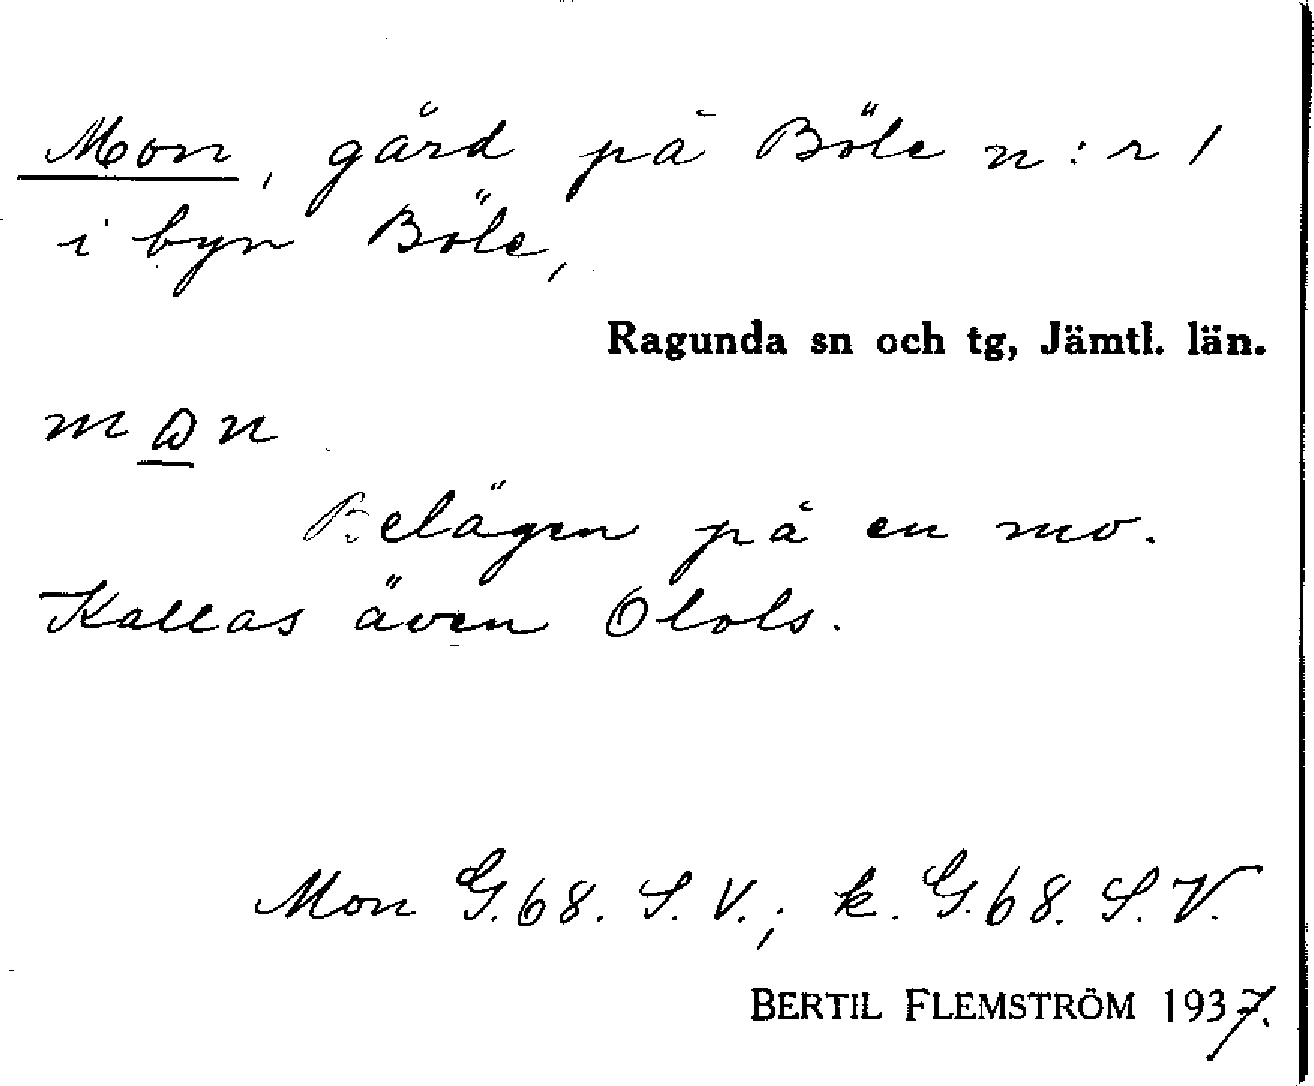 Mon, gård på Böle n:r 1
i byn Böle,
Ragunda sn och tg, Jämtl. län.
Belägen på en mo.
Kallas även Olols.
Mon G.68. S. V.; k. G.68. S. V.
BERTIL FLEMSTRÖM 1937.